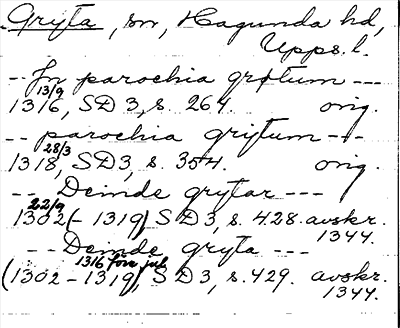 Gryta, sn, Hagunda hd,
Upps. l.
-- In parochia grøtum ---
13/9
1316, SD 3, s. 264. orig.
-- parochia gritum ---
28/3
1318, SD 3, s. 354. orig.
-- Deinde grytar ---
22/9
1302 (- 1319) SD 3, s. 428. avskr.
1344.
-- Deinde gryta ---
1316 före juli
(1302 - 1319), SD 3, s. 429. avskr.
1344.